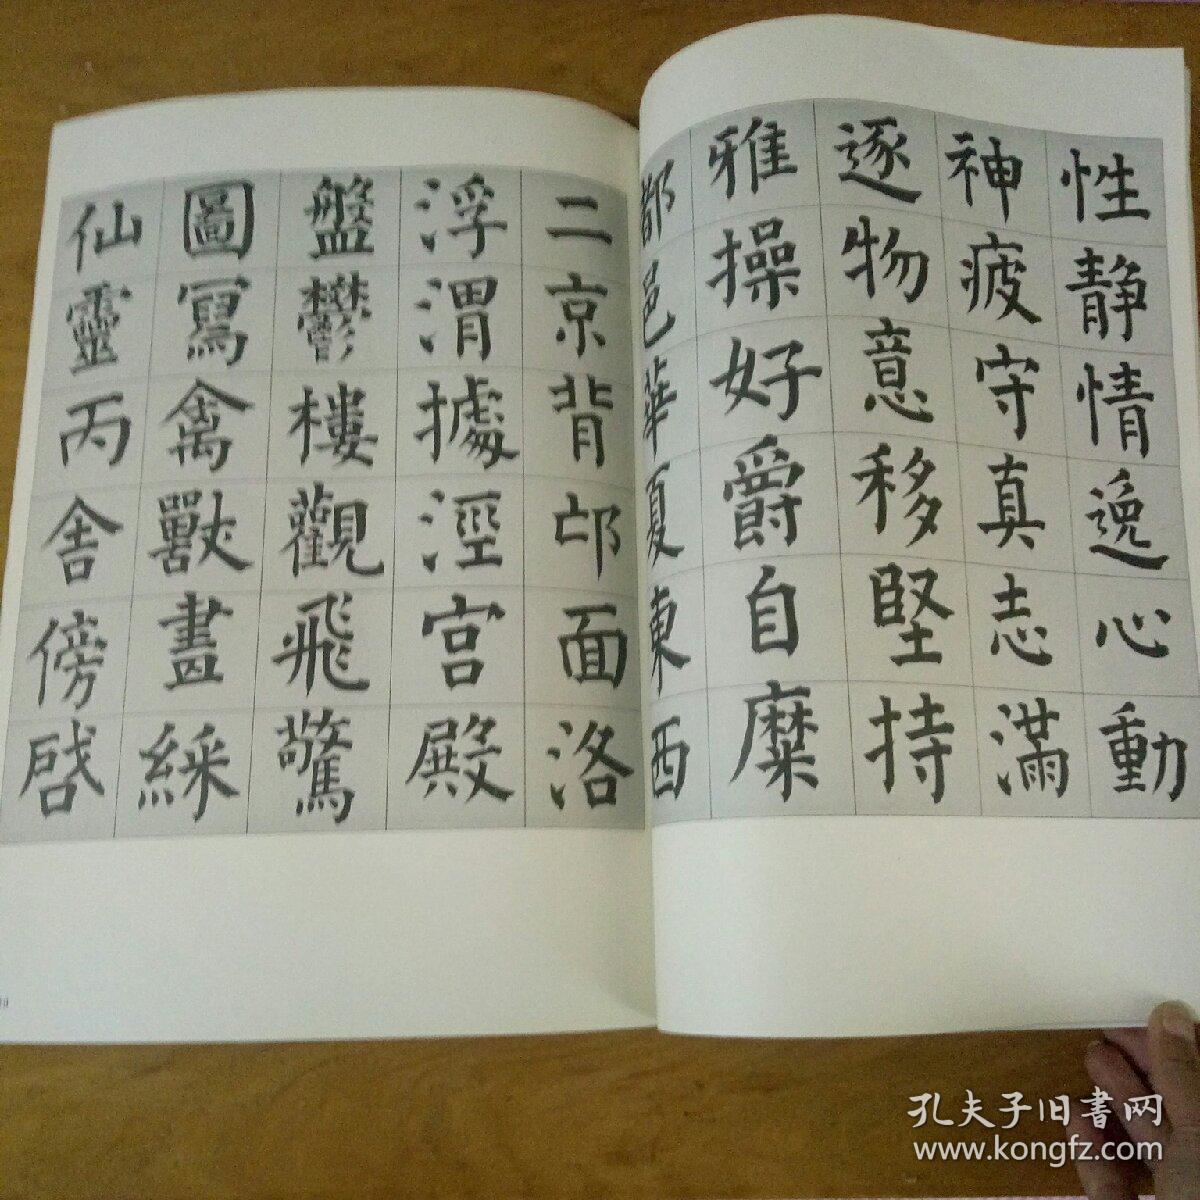 性静情逸心動
神疲守真志滿
逐物意移堅持
雅操好爵自糜
都邑華夏東西
二京背邙面洛
浮渭據涇宫殿
盤鬱樓觀飛驚
圖寫禽獸畫綵
仙靈丙舍傍啓
孔夫子旧書网
www.kongfz.com